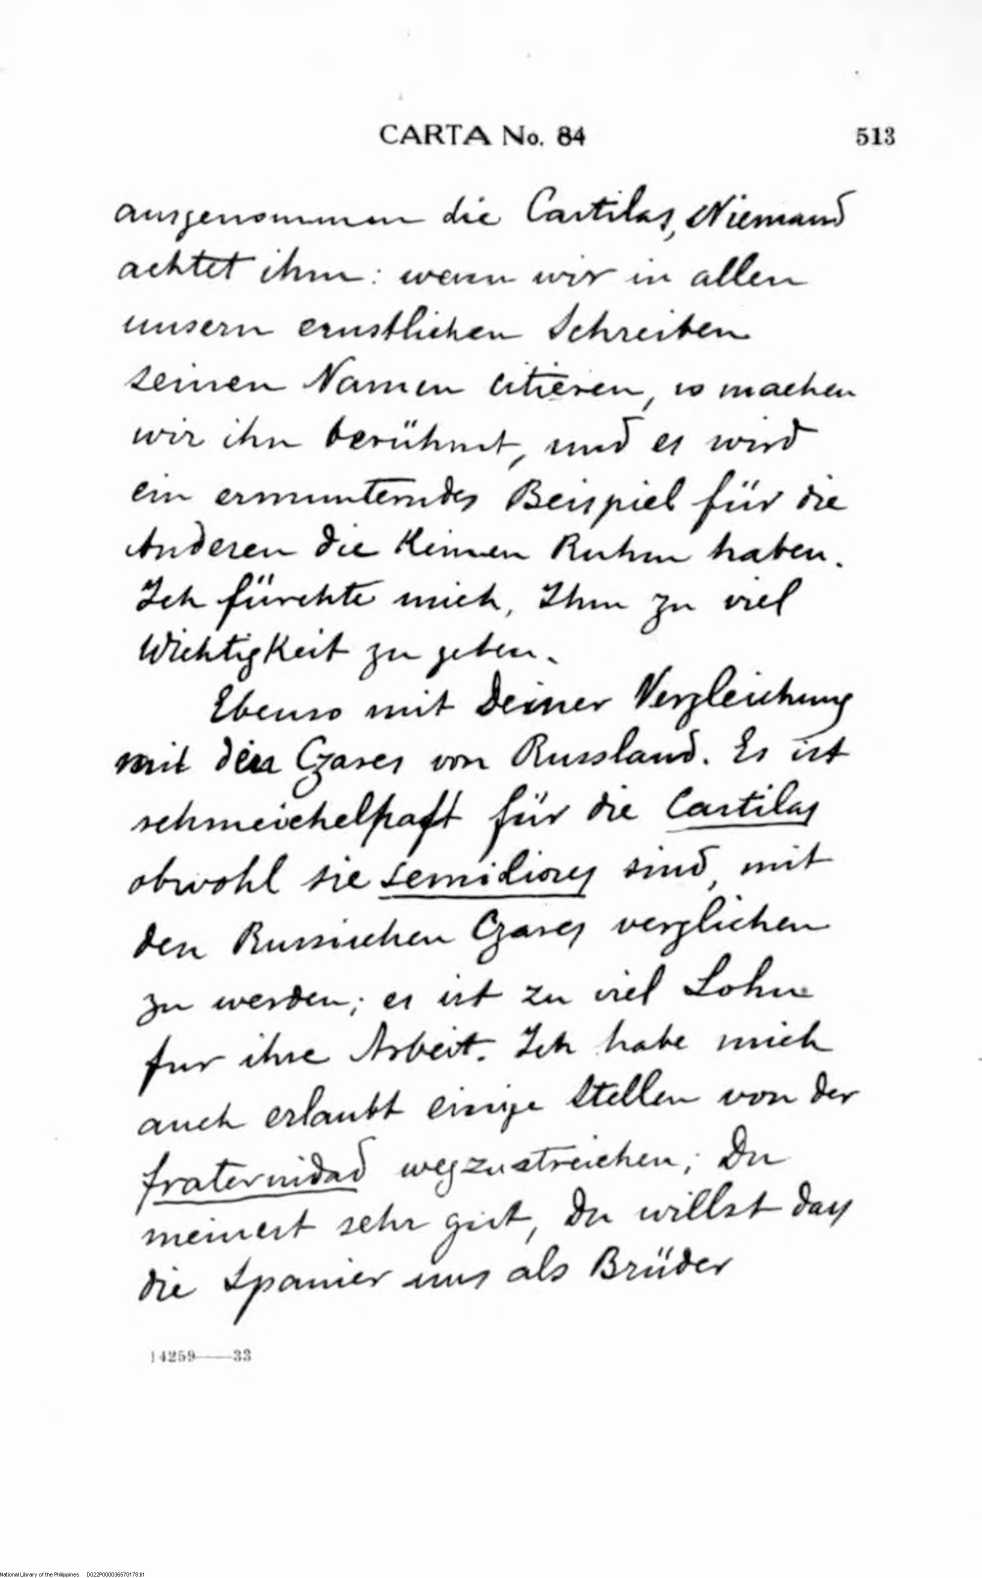 CARTA No. 84 513
ausgenommen die Castilas, Niemand
achtet ihm: wenn wir in allen
unsern ernstlichen Schreiben
seinen Namen citieren, so machen
wir ihn berühmt, und es wird
ein ermunterndes Beispiel für die
Anderen die Keinen Ruhm haben.
Ich fürchte mich, Ihm zu viel
WichtigKeit zu geben.
Ebenso mit Deiner Vergleichung
mit den Czares von Russland. Es ist
schmeichelhaft für die Castilas
obwohl sie semidioses sind, mit
den Russischen Czares verglichen
zu werden; es ist zu viel Lohn
fur ihre Arbeit. Ich habe mich
auch erlaubt einige Stellen von der
fraternidad wegzustreichen; Du
meinest sehr gut, Du willst das
die Spanier uns als Brüder
14259——33
National Library of the Philippines